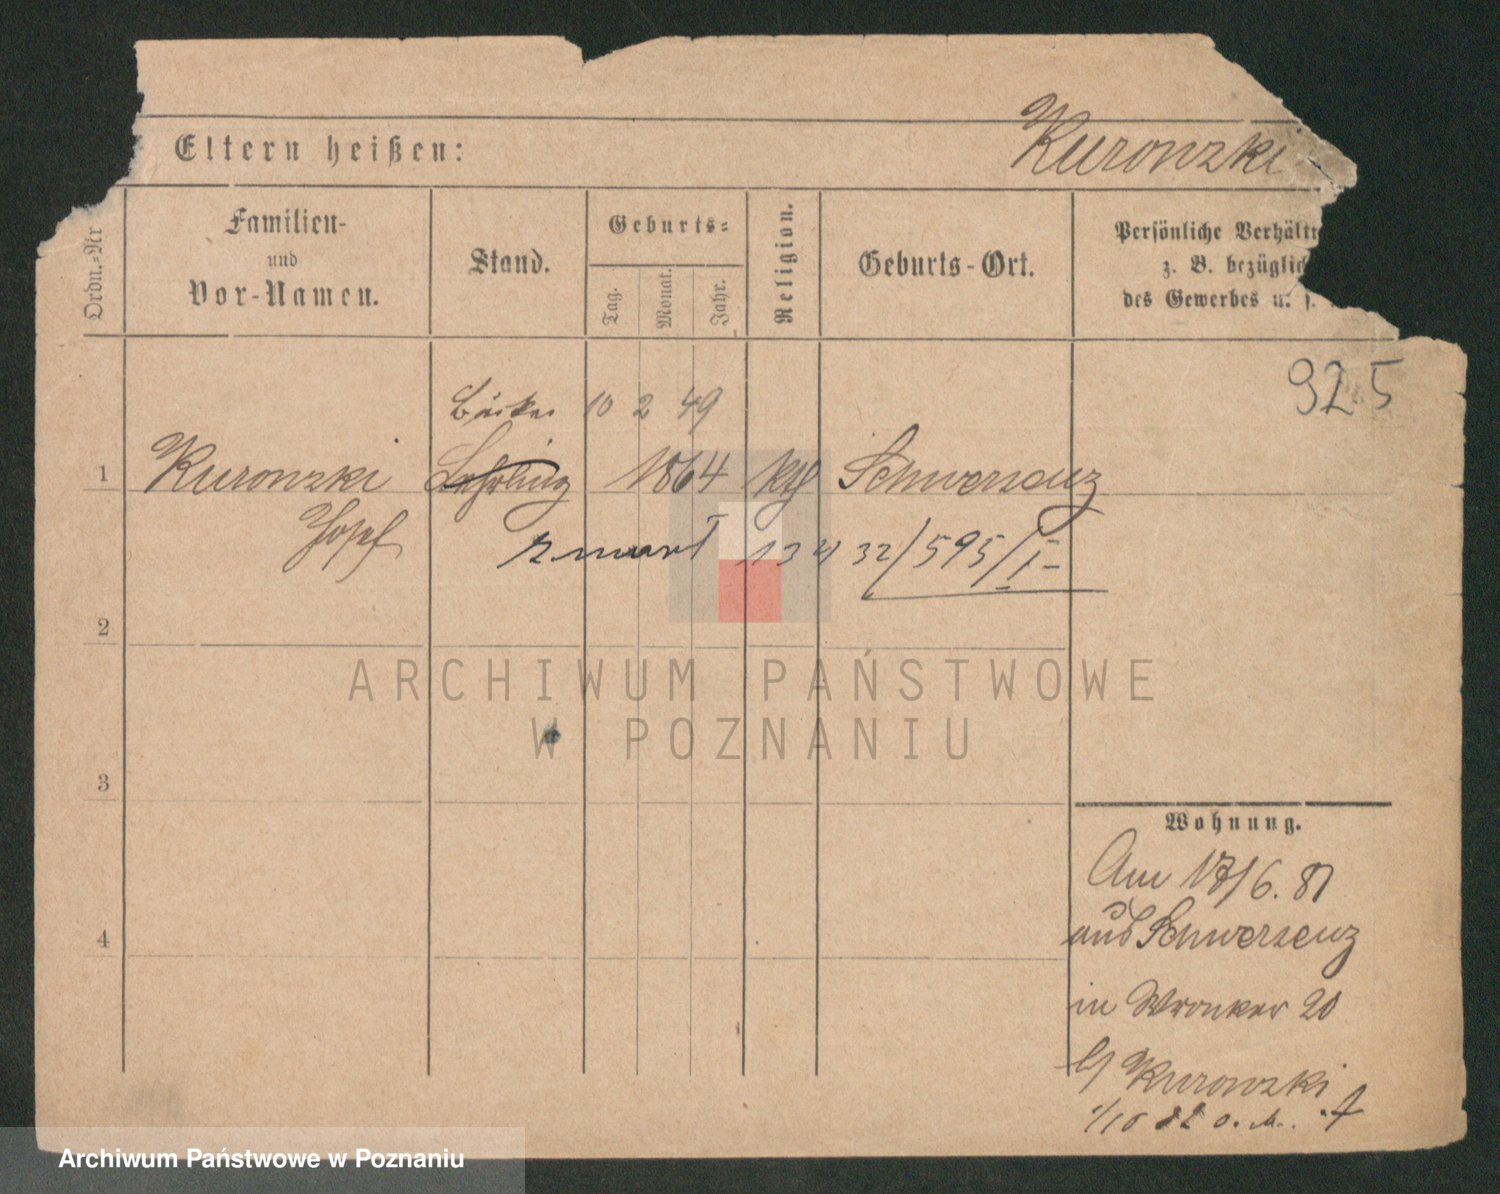 Kuronzki
Eltern heißen:
Ordn.-Nr
Familien-
und
Vor-Namen.
Stand.
Geburts-
Tag.
Monat.
Jahr.
Religion.
Geburts-Ort.
Persönliche Verhält
z. B. bezüglic
des Gewerbes u. s.
925
Bäcker 10 2 49
1 Kuronzki Lehrling 1864 kth Schwersenz
Josef
zmarł 13 4 32/595/I-
2
3
4
Wohnung.
Am 17/6. 81
aus Schwersenz
in Wronker 20
b/ Kuronzki
1/10 82 o. A.
ARCHIWUM PAŃSTWOWE
W POZNANIU
Archiwum Państwowe w Poznaniu